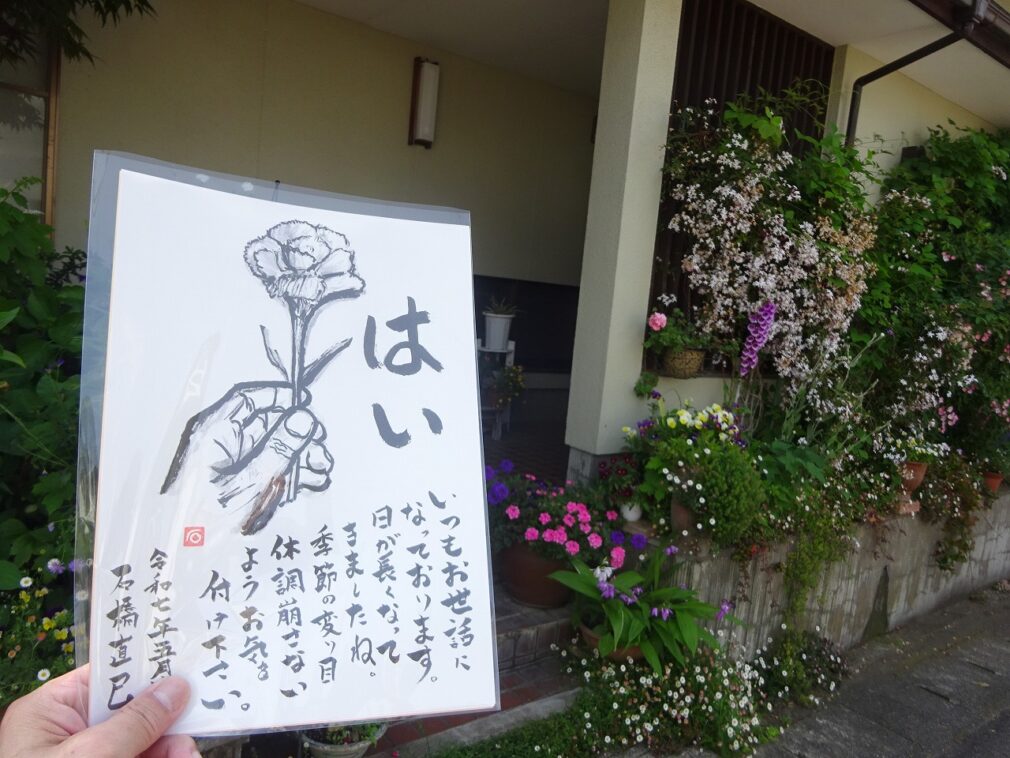 はい
いつもお世話に
なっております。
日が長くなって
きましたね。
季節の変り目
体調崩さない
ようお気を
付け下さい。
令和七年五月
石橋直巳